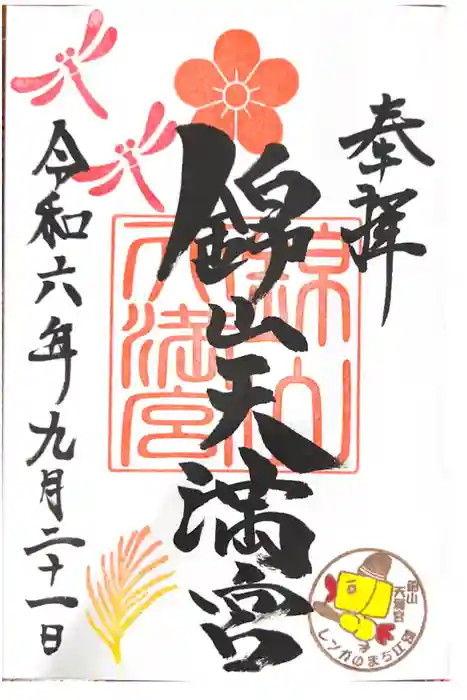 奉拝
錦山天満宮
令和六年九月二十一日
錦山
天満宮
錦山
天満宮
レンガのまち江別